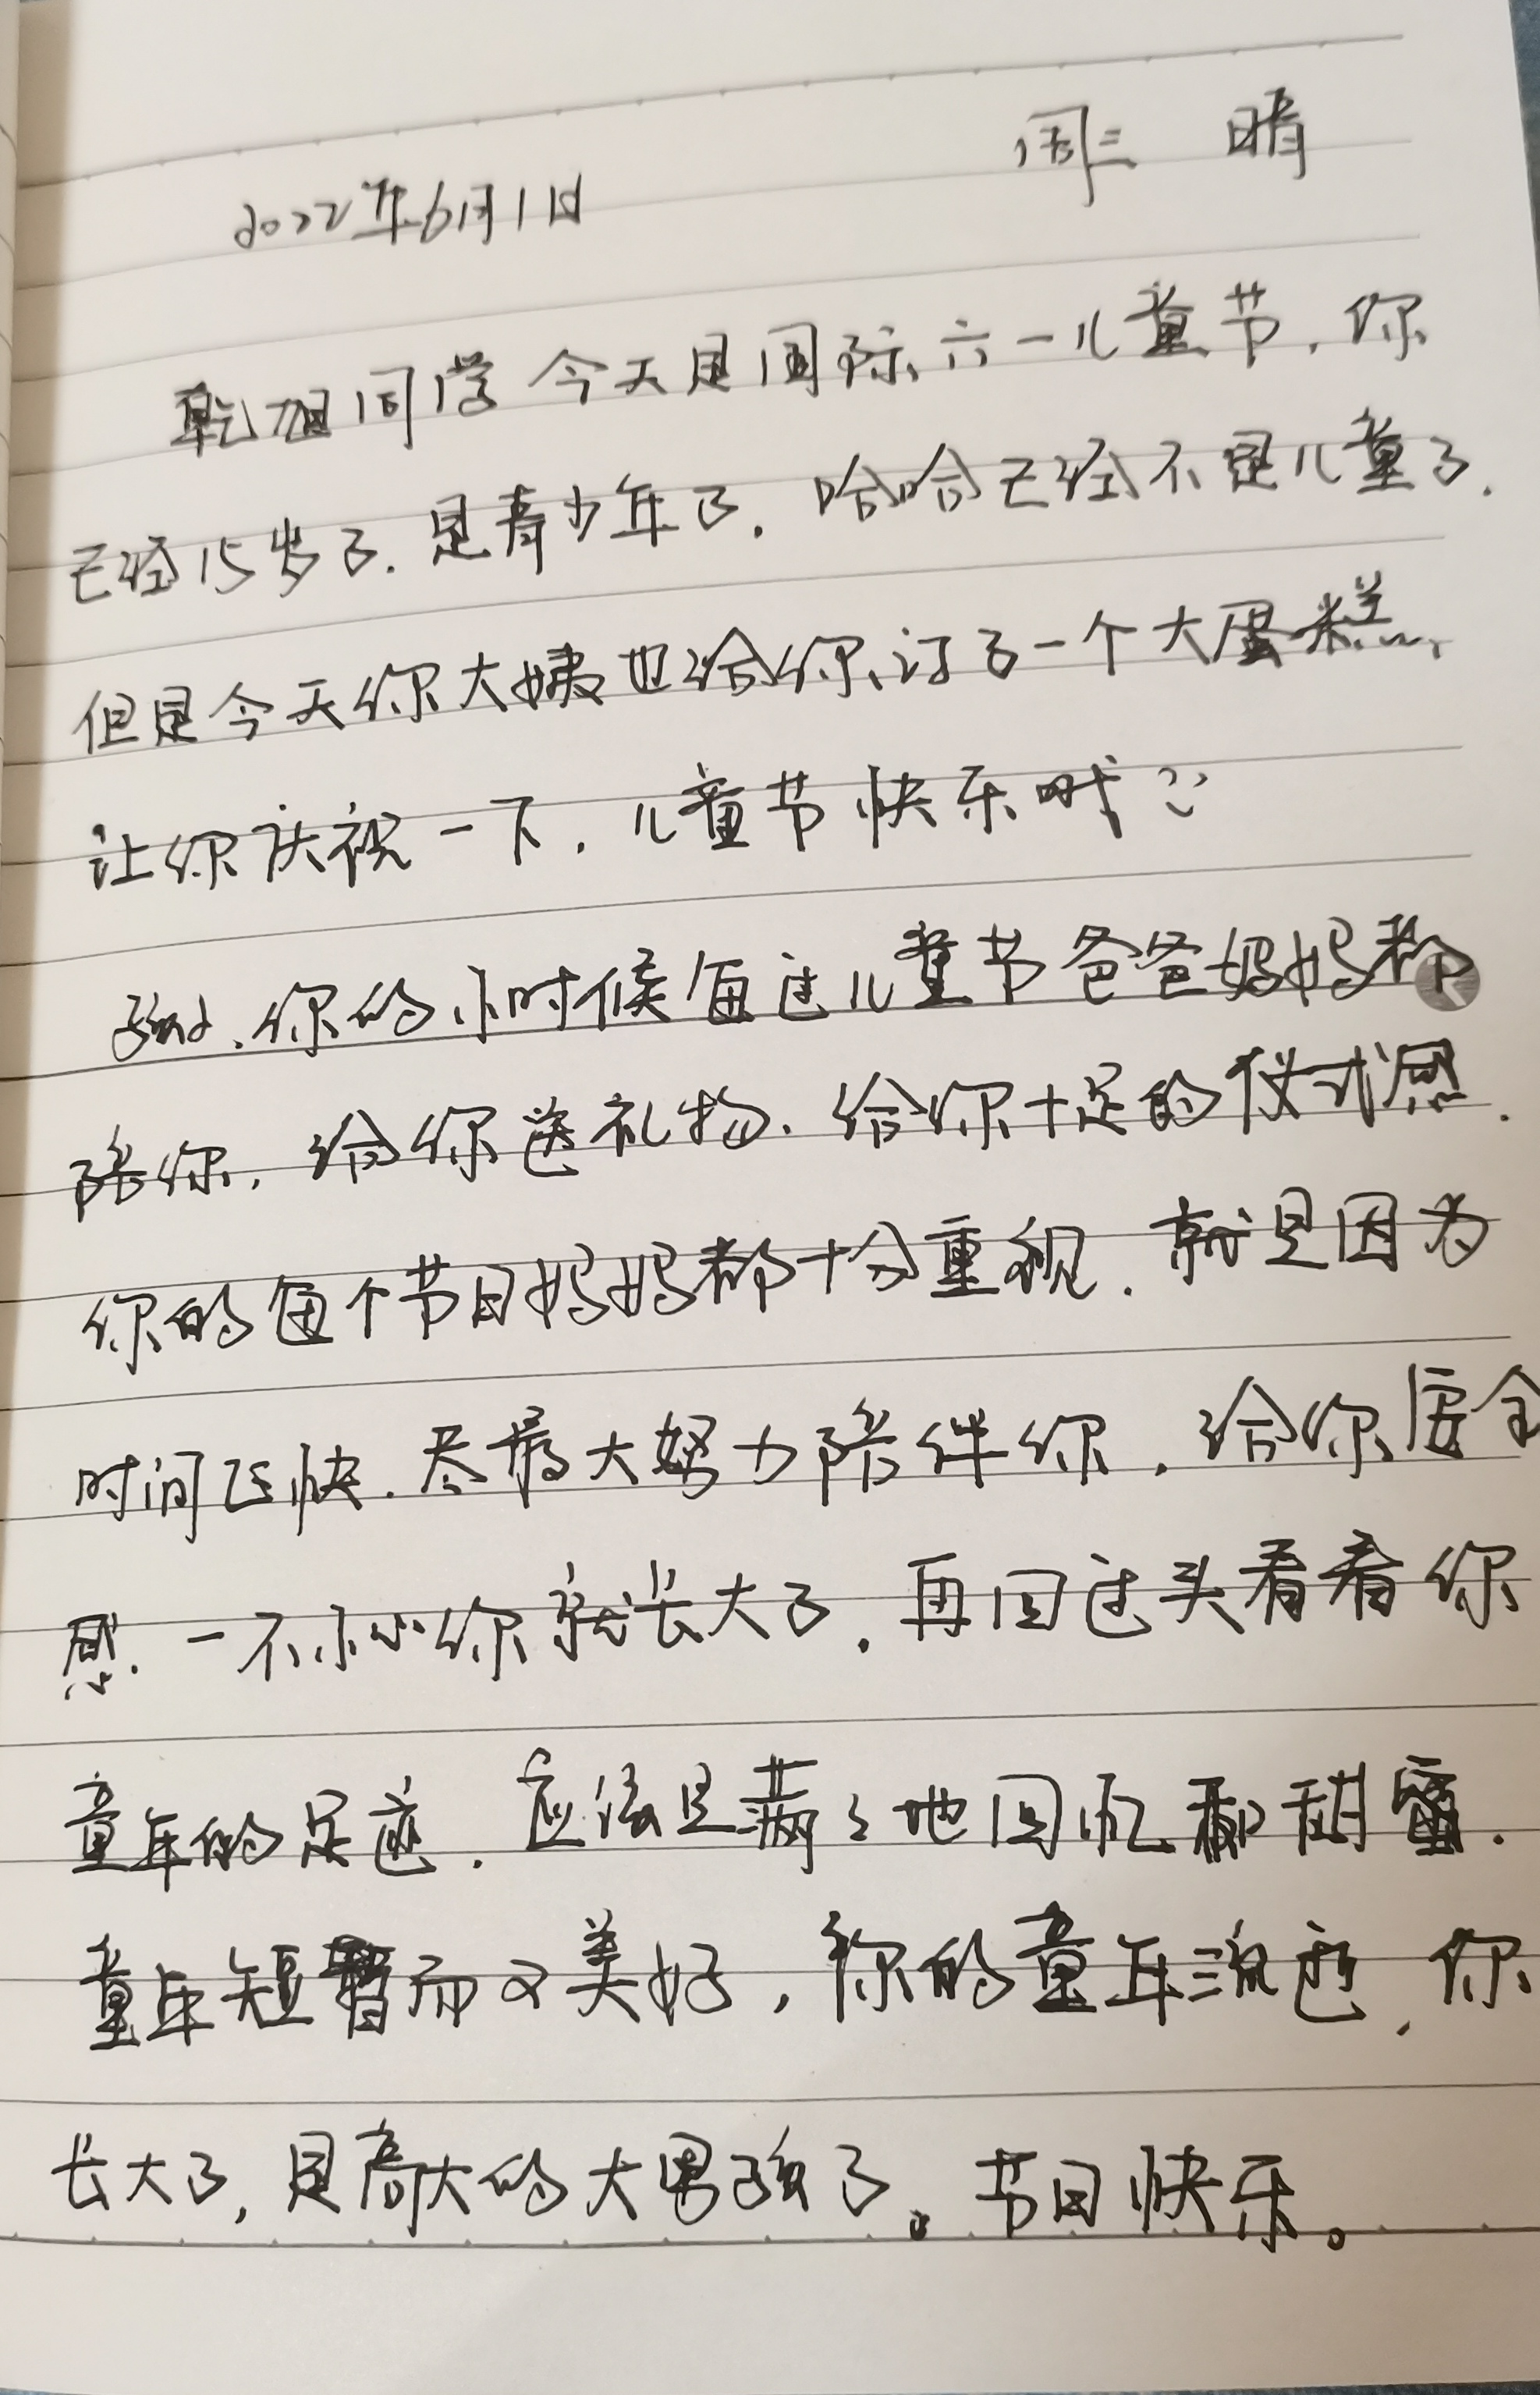 周三 晴
2022年6月1日
乾旭同学今天是国际六一儿童节,你
已经15岁了.是青少年了.哈哈已经不是儿童了.
但是今天你大姨也给你订了一个大蛋糕,
让你庆祝一下.儿童节快乐哦
你的小时候每过儿童节爸爸妈妈都
陪你.给你送礼物.给你十足的仪式感.
你的每个节日妈妈都十分重视.就是因为
时间飞快.尽最大努力陪伴你,给你安全
感.一不小心你就长大了.再回过头看看你
童年的足迹.应该是满满地回忆和甜蜜.
童年短暂而又美好,你的童年流逝,你
长大了,是高大的大男孩了。节日快乐。